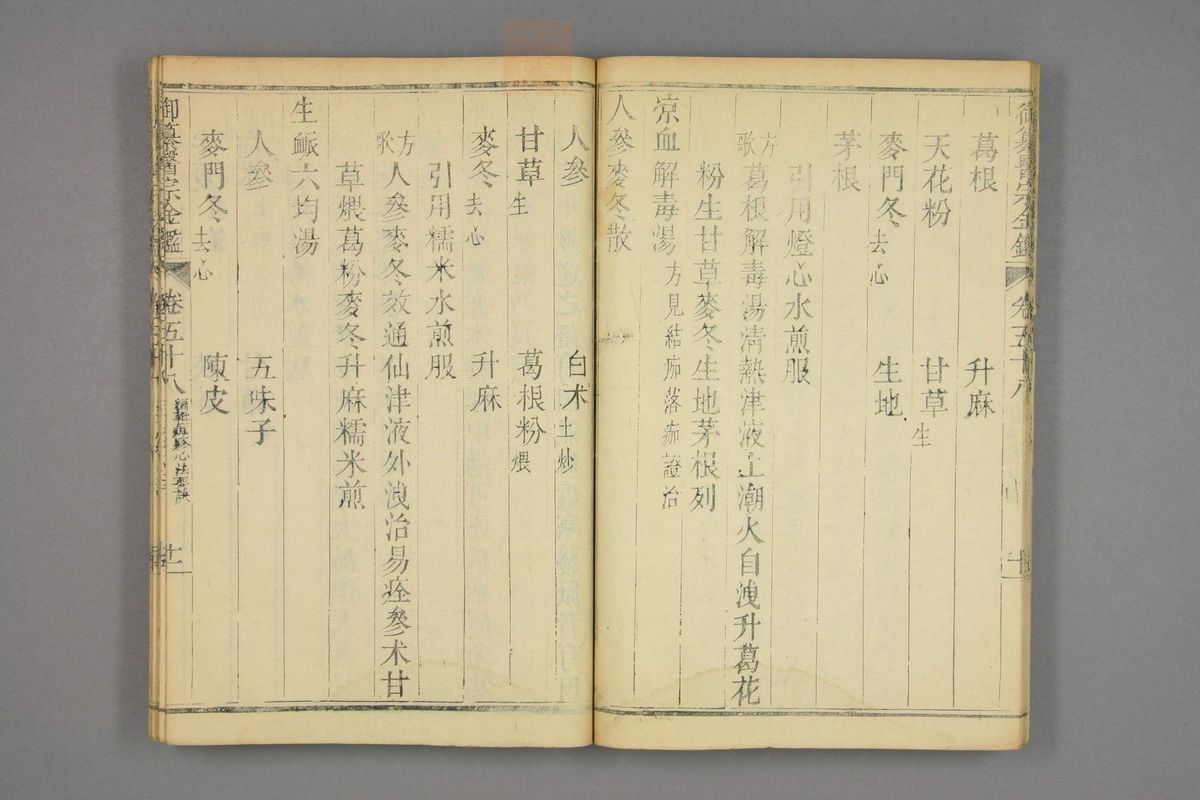 御纂醫宗金鑑 卷五十八 十
葛根 升麻
天花粉 甘草生
麥門冬去心 生地
茅根
引用燈心水煎服
方歌 葛根解毒湯清熱津液上潮火自洩升葛花
粉生甘草麥冬生地茅根列
涼血解毒湯 方見結痂落痂證治
人參麥冬散
人參 白朮土炒
甘草生 葛根粉煨
麥冬去心 升麻
引用糯米水煎服
方歌 人參麥冬效通仙津液外洩治易痊參朮甘
草煨葛粉麥冬升麻糯米煎
生脈六均湯
人參 五味子
麥門冬去心 陳皮
御纂醫宗金鑑 卷五十八 編輯痘疹心法要訣 十一